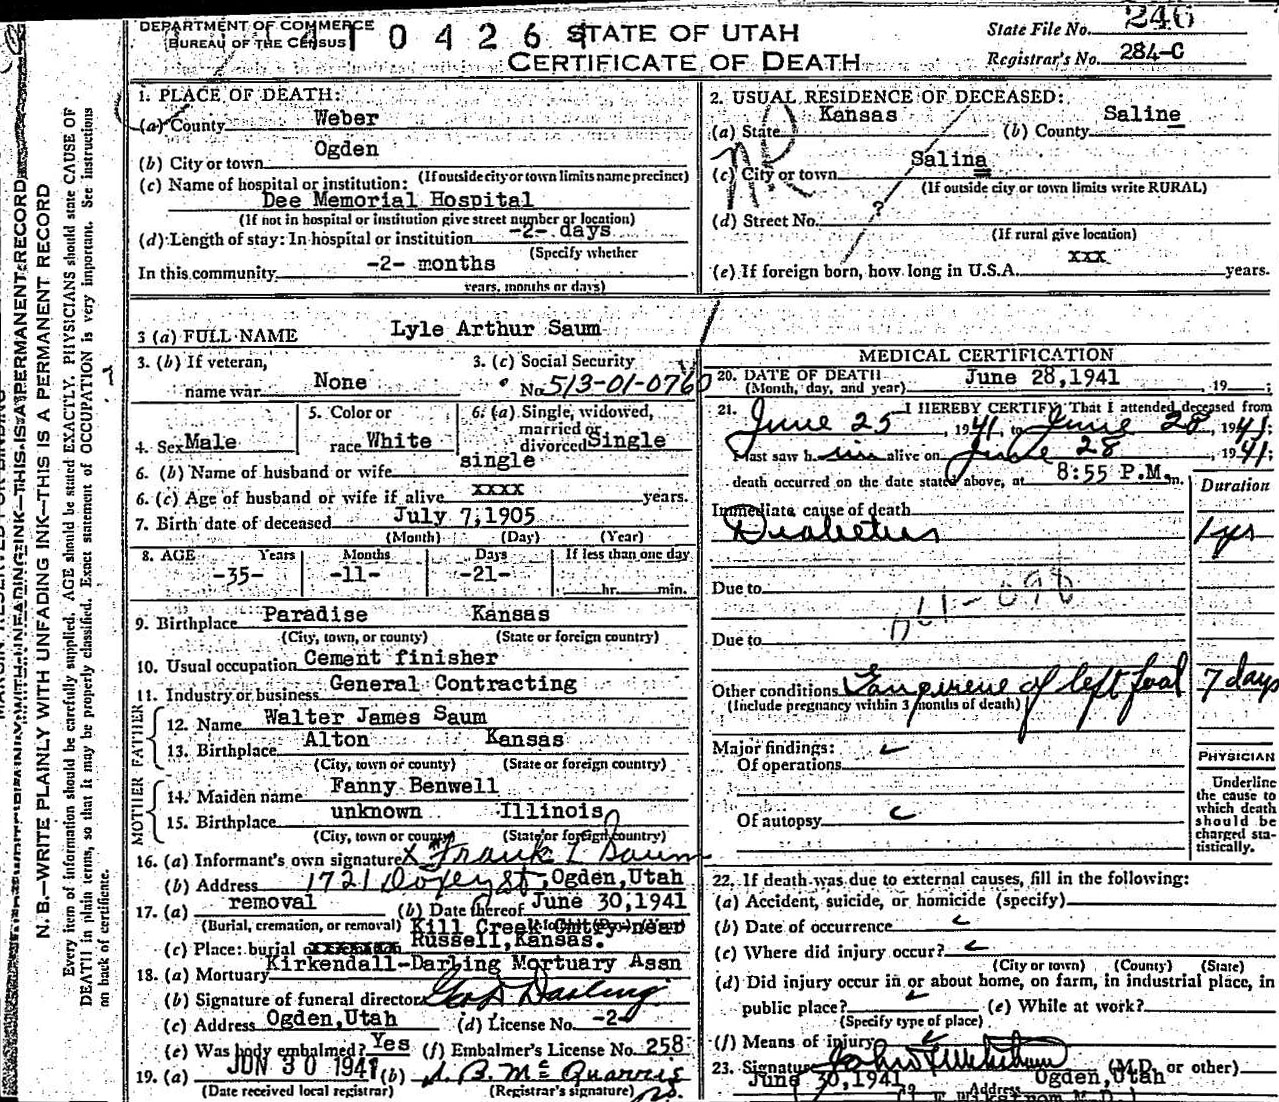 DEPARTMENT OF COMMERCE
BUREAU OF THE CENSUS
4 1 0 4 2 6 4
STATE OF UTAH
CERTIFICATE OF DEATH
State File No. 246
Registrar's No. 284-C
1. PLACE OF DEATH:
(a) County Weber
(b) City or town Ogden
(If outside city or town limits name precinct)
(c) Name of hospital or institution:
Dee Memorial Hospital
(If not in hospital or institution give street number or location)
(d) Length of stay: In hospital or institution -2- days
(Specify whether
In this community -2- months
years, months or days)
2. USUAL RESIDENCE OF DECEASED:
(a) State Kansas (b) County Saline
(c) City or town Salina
(If outside city or town limits write RURAL)
NR
(d) Street No. ?
(If rural give location)
(e) If foreign born, how long in U.S.A. xxx years.
3 (a) FULL NAME Lyle Arthur Saum
3. (b) If veteran, name war None
3. (c) Social Security No. 513-01-0760
4. Sex Male
5. Color or race White
6. (a) Single, widowed, married or divorced Single
6. (b) Name of husband or wife single
6. (c) Age of husband or wife if alive xxxx years.
7. Birth date of deceased July 7,1905
(Month) (Day) (Year)
8. AGE Years Months Days If less than one day
-35- -11- -21- hr. min.
9. Birthplace Paradise Kansas
(City, town, or county) (State or foreign country)
10. Usual occupation Cement finisher
11. Industry or business General Contracting
FATHER
12. Name Walter James Saum
13. Birthplace Alton Kansas
(City, town or county) (State or foreign country)
MOTHER
14. Maiden name Fanny Benwell
15. Birthplace unknown Illinois
(City, town or county) (State or foreign country)
16. (a) Informant's own signature X Frank L Saum
(b) Address 1721 Doxey St, Ogden,Utah
17. (a) removal (b) Date thereof June 30,1941
(Burial, cremation, or removal)
(c) Place: burial or xxxxxxxxx Kill Creek Cmty-near
Russell,Kansas.
18. (a) Mortuary Kirkendall-Darling Mortuary Assn
(b) Signature of funeral director Geo D Darling
(c) Address Ogden,Utah (d) License No. -2-
(e) Was body embalmed? Yes (f) Embalmer's License No. 258
19. (a) JUN 30 1941 (b) A. B. McQuarrie
(Date received local registrar) (Registrar's signature)
MEDICAL CERTIFICATION
20. DATE OF DEATH June 28,1941 , 19 ;
(Month, day, and year)
21. I HEREBY CERTIFY, That I attended deceased from
June 25 , 1941, to June 28 , 1941;
I last saw him alive on June 28 , 1941;
death occurred on the date stated above, at 8:55 P.M. m.
Duration
Immediate cause of death
Diabetes 1 yrs
Due to
Due to
Other conditions Gangrene of left foot 7 days
(Include pregnancy within 3 months of death)
Major findings:
Of operations
Of autopsy
PHYSICIAN
Underline
the cause to
which death
should be
charged sta-
tistically.
22. If death was due to external causes, fill in the following:
(a) Accident, suicide, or homicide (specify)
(b) Date of occurrence
(c) Where did injury occur?
(City or town) (County) (State)
(d) Did injury occur in or about home, on farm, in industrial place, in
public place? (e) While at work?
(Specify type of place)
(f) Means of injury
23. Signature (M.D. or other)
June 30,1941 Address Ogden,Utah
N. B.—WRITE PLAINLY WITH UNFADING INK—THIS IS A PERMANENT RECORD
Every item of information should be carefully supplied. AGE should be stated EXACTLY. PHYSICIANS should state CAUSE OF
DEATH in plain terms, so that it may be properly classified. Exact statement of OCCUPATION is very important. See instructions
on back of certificate.